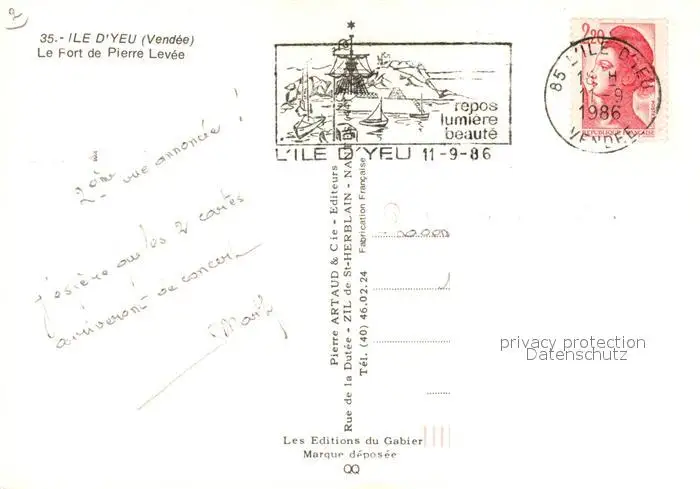 2
35.- ILE D'YEU (Vendée)
Le Fort de Pierre Levée
2ème vue annoncée !
J'espère que les 2 cartes
arriveront de concert
repos
lumière
beauté
L'ILE D'YEU 11-9-86
2,20
85 L'ILE D'YEU
18 H
11-9
1986
VENDEE
REPUBLIQUE FRANÇAISE
Pierre ARTAUD & Cie - Editeurs
Rue de la Dutée - ZIL de St-HERBLAIN - NANTES
Tél. (40) 46.02.24 Fabrication Française
privacy protection
Datenschutz
Les Editions du Gabier
Marque déposée